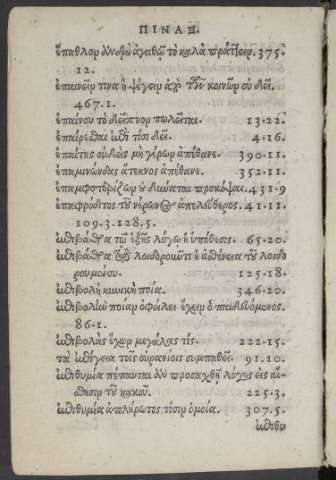 ΠΙΝΑΞ.
ἔπαθλον ἀνδρὶ ἀγαθῷ τὸ καλὰ πράττειν. 375.
12.
ἐπαινεῖν τινα ἢ ψέγειν ἀπὸ τῶν κοινῶν οὐ δεῖ.
467.1.
ἐπαίνου τὸ δεῖπνον πωλεῖται. 13.22.
ἐπαίρεσθαι ἐπὶ τίσι δεῖ. 4.16.
ἐπαίτης οὐδεὶς μὴ γέρων ἀπέθανε. 390.11.
ἐπαμινώνδας ἄτεκνος ἀπέθανε. 352.11.
ἐπαμφοτερίζων οὐ δύναται προκόψαι. 431.9
ἐπαφρόδιτος τοῦ νέρωνος ἀπελεύθερος. 41.11.
109.3.128.5.
ἐπιβάθρα τῷ ἑξῆς λόγῳ ἡ ὑπόθεσις. 65.20.
ἐπιβάθρα τοῦ λοιδοροῦντι ἡ ἀσθένεια τοῦ λοιδο
ρουμένου. 125.18.
ἐπιβολὴ κυνικὴ ποία. 346.20.
ἐπιβολὴν ποίαν ὀφείλει ἔχειν ὁ παιδευόμενος.
86.1.
ἐπιβολὰς ἔχων μεγάλας τίς. 222.15.
τὰ ἐπίγεια τοῖς οὐρανίοις συμπαθεῖ. 91.10.
ἐπιθυμία πέπαυται ἂν προσαχθῇ λόγος εἰς αἴ-
σθησιν τοῦ κακοῦ. 225.3.
ἐπιθυμία ἀπλήρωτος τίσιν ὁμοία. 307.5.
ἐπιθυ